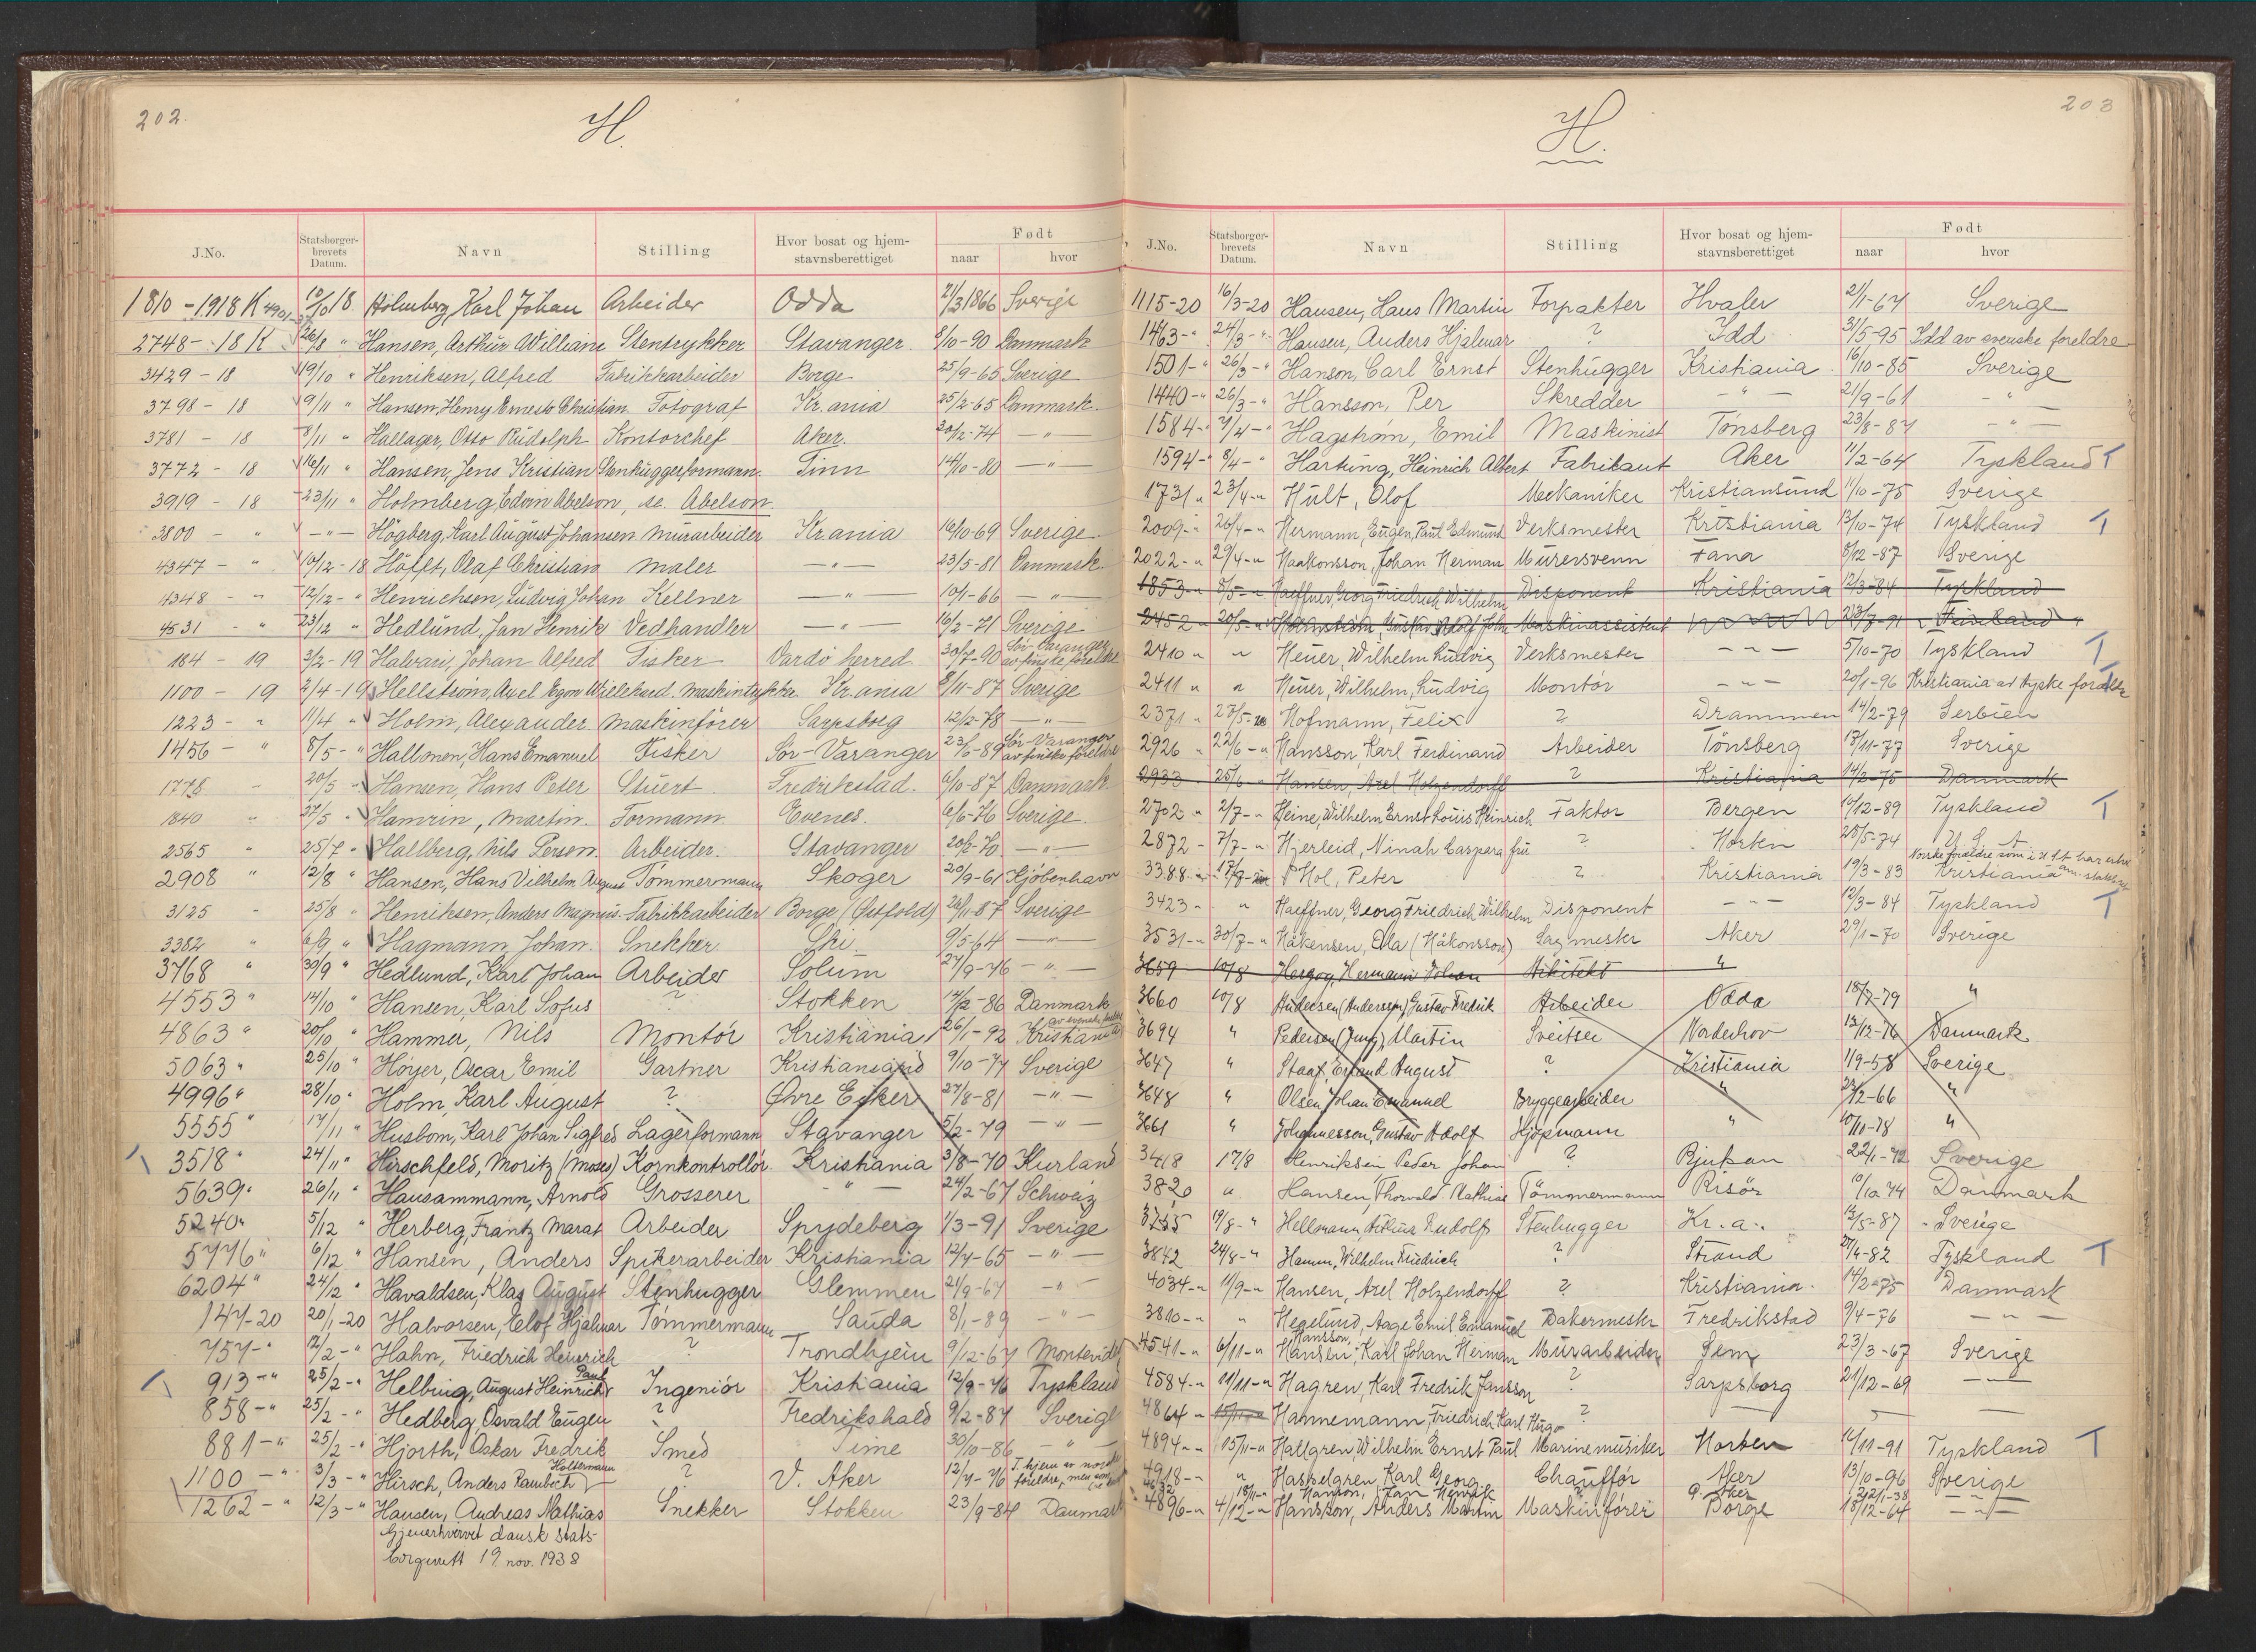 202.
H.
J.No. Statsborger-brevets Datum. Navn Stilling Hvor bosat og hjem-stavnsberettiget Født naar hvor
1810 - 1918 K 10/8 18 Holmberg, Karl Johan Arbeider Odda 21/3 1866 Sverige
2748 - 18 K 26/8 " Hansen, Arthur William Stentrykker Stavanger 8/10-90 Danmark
3429 - 18 19/10 " Henriksen, Alfred Fabrikkarbeider Borge 25/9-65 Sverige
3798 - 18 9/11 " Hansen, Henry Ernesto Christian Fotograf Kr.ania 25/2-65 Danmark.
3781 - 18 9/11 " Hallager, Otto Rudolph Kontorchef Aker. 20/2-74 - " -
3772 - 18 16/11 " Hansen, Jens Kristian Stenhuggerformann. Tinn 14/10-80 - " -
3919 - 18 23/11 " Holmberg, Edvin Abelson, se. Abelson.
3800 - " - " - Högberg, Karl August Johansen Murarbeider Kr.ania 16/10-69 Sverige
4347 - " 10/12-18 Höfft, Olaf Christian Maler - " - 23/5-81 Danmark.
4348 - " 12/12 - " Henrichsen, Ludvig Johan Kellner - " - 10/1-66 - " -
4531 - " 23/12 " Hedlund, Jan Henrik Vedhandler - " - 16/2-71 Sverige
184 - 19 3/2-19 Halvari, Johan Alfred Fisker Vardö herred 30/7-90 Sör-Varanger av finske foreldre
1100 - 19 2/4-19 Hellström, Axel Egon Maskintrykker Kr.ania 8/11-87 Sverige
1223 - " 11/4 " Holm, Alexander Maskinförer Sarpsborg 12/2-78 - " -
1456 - " 8/5 - " Hallonen, Hans Emanuel Fisker Sör-Varanger 23/6-89 Sör-Varanger av finske foreldre
1778 - 20/5 - " Hansen, Hans Peter Stuert. Fredrikstad. 6/10-87 Danmark.
1840 " 27/5 " Hamrin, Martin. Formann Evenes. 6/6-76 Sverige.
2565 " 25/7 - " Hallberg, Nils Person. Arbeider. Stavanger 20/2-70. - " -
2908 " 12/8 " Hansen, Hans Vilhelm August Tömmermann Skoger 20/9-61 Kjöbenhavn
3125 - 25/8 " Henriksen, Anders Magnus. Fabrikkarbeider Borge (Østfold) 26/11-87 Sverige
3382 " 6/9 " Hagmann, Johan. Snekker Ski. 9/5-64 - " -
3768 " 30/9 " Hedlund, Karl Johan Arbeider Solum 27/9-76 - " -
4553 " 14/10 " Hansen, Karl Sofus ? Stokken 14/2-86 Danmark
4863 " 20/10 " Hammer, Nils Montör Kristiania 26/1-92 Kristiania av svenske
5063 " 25/10 " Höyer, Oscar Emil Gartner Kristiansand 9/10-74 Sverige
4996 " 28/10 " Holm, Karl August ? Øvre Eiker 27/8-81 - " -
5555 " 17/11 " Husbom, Karl Johan Sigfred Lagerformann Stavanger 5/2-79 - " -
3518 " 24/11 " Hirschfeld, Moritz (Moses) Kornkontrollör Kristiania 3/8-70 Kurland
5639 " 26/11 " Hausammann, Arnold Grosserer - " - 24/2-67 Schweiz
5240 " 5/12 " Herberg, Frantz Marat Arbeider Spydeberg 1/3-91 Sverige
5776 " 6/12 " Hansen, Anders Spikerarbeider Kristiania 12/7-65 - " -
6204 " 24/12 " Havaldsen, Klas August Stenhugger Glemmen 21/9-67 - " -
147-20 20/1-20 Halvorsen, Elof Hjalmar Tömmermann Sauda 8/1-89 - " -
757 - " 12/2 - " Hahn, Friedrich Heinrich ? Trondhjem 9/12-67 Montevideo
913 - " 25/2 - " Helbing, August Heinrich Paul Ingeniör Kristiania 12/9-76 Tyskland
858 - " 25/2 - " Hedberg, Osvald Eugen ? Fredrikshald 9/2-87 Sverige
881 - " 25/2 - " Hjorth, Oskar Fredrik Smed Time 30/10-86 - " -
1100 - " 3/3 - " Hirsch, Anders Rambech Holtermann ? V. Aker 12/7-76 T.hjem av norske foreldre, men som
1262 - " 12/3 - " Hansen, Andreas Mathias Snekker Stokken 23/9-84 Danmark
Gjenerhvervet dansk stats-
borgerrett 19. nov. 1938
203
H.
J.No. Statsborger-brevets Datum. Navn Stilling Hvor bosat og hjem-stavnsberettiget Født naar hvor
1115-20 16/3-20 Hansen, Hans Martin Forpakter Hvaler 2/1-67 Sverige
1463 - " 24/3 - " Hansen, Anders Hjalmar ? Idd 31/5-95 Idd av svenske foreldre
1501 - " 26/3 - " Hanson, Carl Ernst Stenhugger Kristiania 16/10-85 Sverige
1440 - " 26/3 - " Hansson, Per Skredder - " - 21/9-61 - " -
1584 - " 7/4 - " Hagström, Emil Maskinist Tönsberg 23/8-87 - " -
1594 - " 8/4 - " Hartung, Heinrich Albert Fabrikant Aker 11/2-64 Tyskland T
1731 " 23/4 - " Hult, Olof Mekaniker Kristiansund 11/10-75 Sverige
2009 - " 26/4 - " Hermann, Eugen, Paul Edmund Verksmester Kristiania 13/10-74 Tyskland T
2022 - " 29/4 - " Haakonsson, Johan Herman Murersvenn Fana 8/12-87 Sverige
1853 - " 8/5 - " Haeffner, Georg Friedrich Wilhelm Disponent Kristiania 12/3-84 Tyskland
2452 - " 20/5 - " Gustav Adolf John Maskinassistent 23/7-91
2410 " " Heuer, Wilhelm Ludvig Verksmester - " - 5/10-70 Tyskland T
2411 " " Heuer, Wilhelm, Ludvig Montör - " - 20/1-96 Kristiania av tyske foreldre T
2371 " 27/5-20 Hofmann, Felix ? Drammen 14/2-79 Serbien
2926 " 22/6 - " Hansson, Karl Ferdinand Arbeider Tönsberg 17/11-77 Sverige
2933 - 25/6 - " Hansen, Axel Holzendorff ? Kristiania 14/2-75 Danmark
2702 " 2/7 - " Heine, Wilhelm Ernst Louis Heinrich Faktor Bergen 19/12-89 Tyskland T
2872 - 7/7 - " Hjerleid, Ninah Caspara fru ? Horten 28/5-74 U S A
Norske foreldre som i U.S.A. har erhv. am. statsb.rett
3388 - " 17/7 Hol, Peter ? Kristiania 19/3-83 Kristiania
3423 - " Haeffner, Georg Friedrich Wilhelm Disponent - " - 12/3-84 Tyskland T
3531 - " 30/7 - " Håkensen, Ola (Håkonsson) Sagmester Aker 29/1-70 Sverige
3659 10/8 Herzog, Hermann Johan Arkitekt "
3660 10/8 Andersen (Andersson) Gustav Fredrik Arbeider Odda 18/7-79 "
3694 " Pedersen (Jung), Martin Sveitser Norderhov 13/12-76 Danmark
3647 " Staaf, Erland August ? Kristiania 1/9-58 Sverige
3648 " Olsen, Johan Emanuel Bryggearbeider " 22/2-66 "
3661 " Johannesson, Gustav Adolf Kjöpmann " 10/10-78 "
3418 17/8 Henriksen Peder Johan ? Rjukan 22/1-72 Sverige
3820 " Hansen, Thorvald Mathias Tömmermann Risör 10/10 74 Danmark
3755 19/8 - " Hellmann, Rudolf Stenhugger Kr.a. 12/5-87 Sverige
3842 24/8 - " Hamm, Wilhelm Friedrich ? Strand 27/4-82 Tyskland T
4034 - " 11/9 - " Hansen, Axel Holzendorff ? Kristiania 14/2-75 Danmark
3810 - " " Hegelund, Aage Emil Emanuel Bakermester Fredrikstad 9/4-76 - " -
4541 - " 6/11 - " Hansen, Hansson, Karl Johan Herman Murarbeider Sem 23/3-67 Sverige
4584 - " 11/11 - " Hagren, Karl Fredrik Jansson ? Sarpsborg 21/12-69 - " -
4864 - " 15/11 - " Hannemann, Friedrich Karl Hugo ? - -
4894 - " 15/11 - " Hallgren, Wilhelm Ernst Paul Marinemusiker Horten 16/11-91 Tyskland T
4918 - " " Haskelgren, Karl Georg Chaufför Aker 13/10-96 Sverige
18/11 - " Hanson, Jan Henrik Aker
4896 - " 4/12 - " Hansson, Anders Martin Maskinförer Borge 18/12-64 - " -